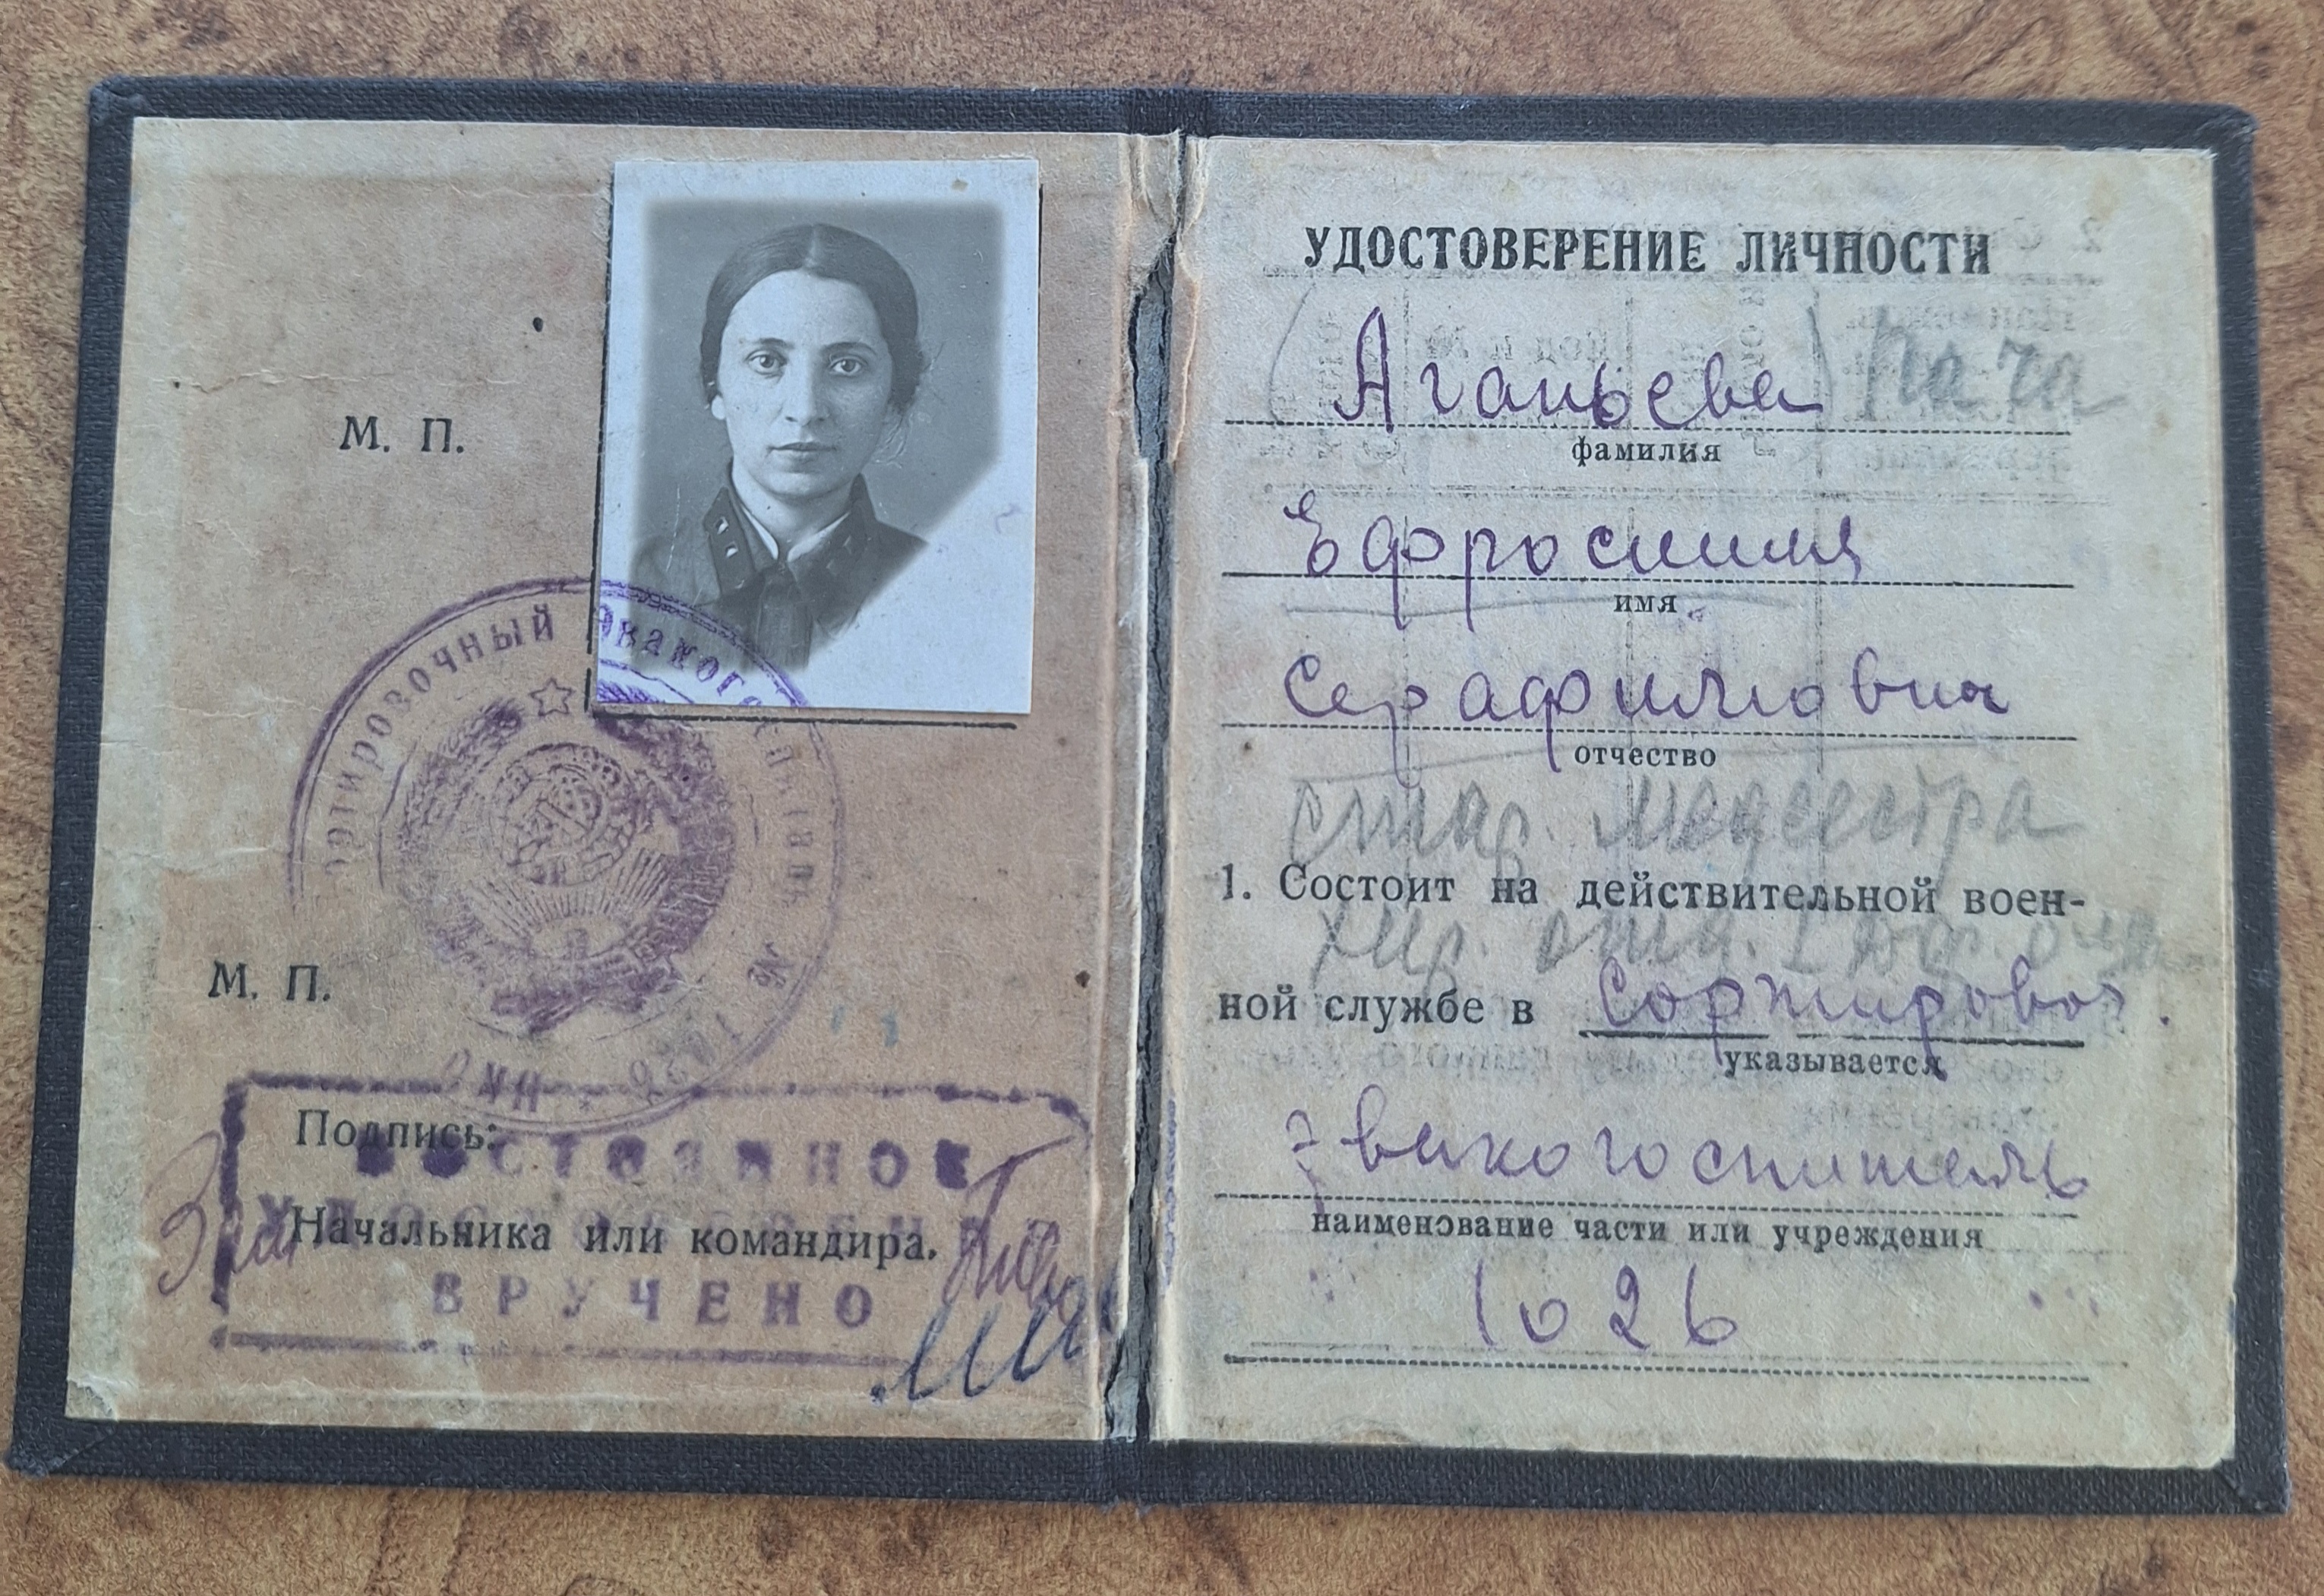 М. П.
СОРТИРОВОЧНЫЙ ЭВАКОГОСПИТАЛЬ № 1026 * НКО
М. П.
Подпись:
ВРУЧЕНО
Начальника или командира.
УДОСТОВЕРЕНИЕ ЛИЧНОСТИ
Агапьева
фамилия
Ефросиния
имя
Серафимовна
отчество
стар. медсестра
1. Состоит на действительной воен-
хир. отд.
ной службе в Сортировоч.
указывается
эвакогоспиталь
наименование части или учреждения
1026